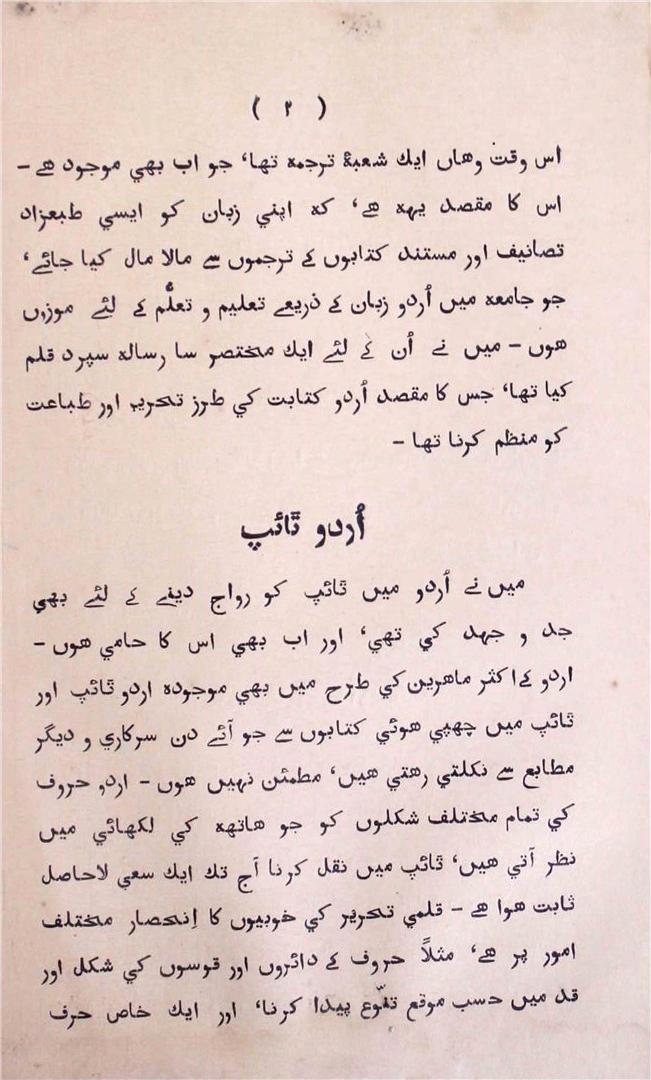 ( ۲ )
اس وقت وهاں ایك شعبۂ ترجمہ تها، جو اب بهي موجود هے -
اس كا مقصد یہہ هے، کہ اپني زبان كو ایسي طبعزاد
تصانیف اور مستند كتابوں كے ترجموں سے مالا مال كیا جائے،
جو جامعہ میں اُردو زبان كے ذریعے تعلیم و تعلُّم كے لئے موزوں
هوں - میں نے اُن كے لئے ایك مختصر سا رسالہ سپرد قلم
كیا تها، جس كا مقصد اُردو كتابت كي طرز تحریر اور طباعت
كو منظم كرنا تها -
اُردو ٹائپ
میں نے اُردو میں ٹائپ كو رواج دینے كے لئے بهي
جد و جهد كي تهي، اور اب بهي اس كا حامي هوں -
اردو كے اكثر ماهرین كي طرح میں بهي موجودہ اردو ٹائپ اور
ٹائپ میں چهپي هوئي كتابوں سے جو آئے دن سركاري و دیگر
مطابع سے نكلتي رهتي هیں، مطمئن نهیں هوں - اردو حروف
كي تمام مختلف شكلوں كو جو هاتهہ كي لكهائي میں
نظر آتي هیں، ٹائپ میں نقل كرنا آج تك ایك سعي لاحاصل
ثابت هوا هے - قلمي تحریر كي خوبیوں كا اِنحصار مختلف
امور پر هے، مثلاً حروف كے دائروں اور قوسوں كي شكل اور
قد میں حسب موقع تنوّع پیدا كرنا، اور ایك خاص حرف